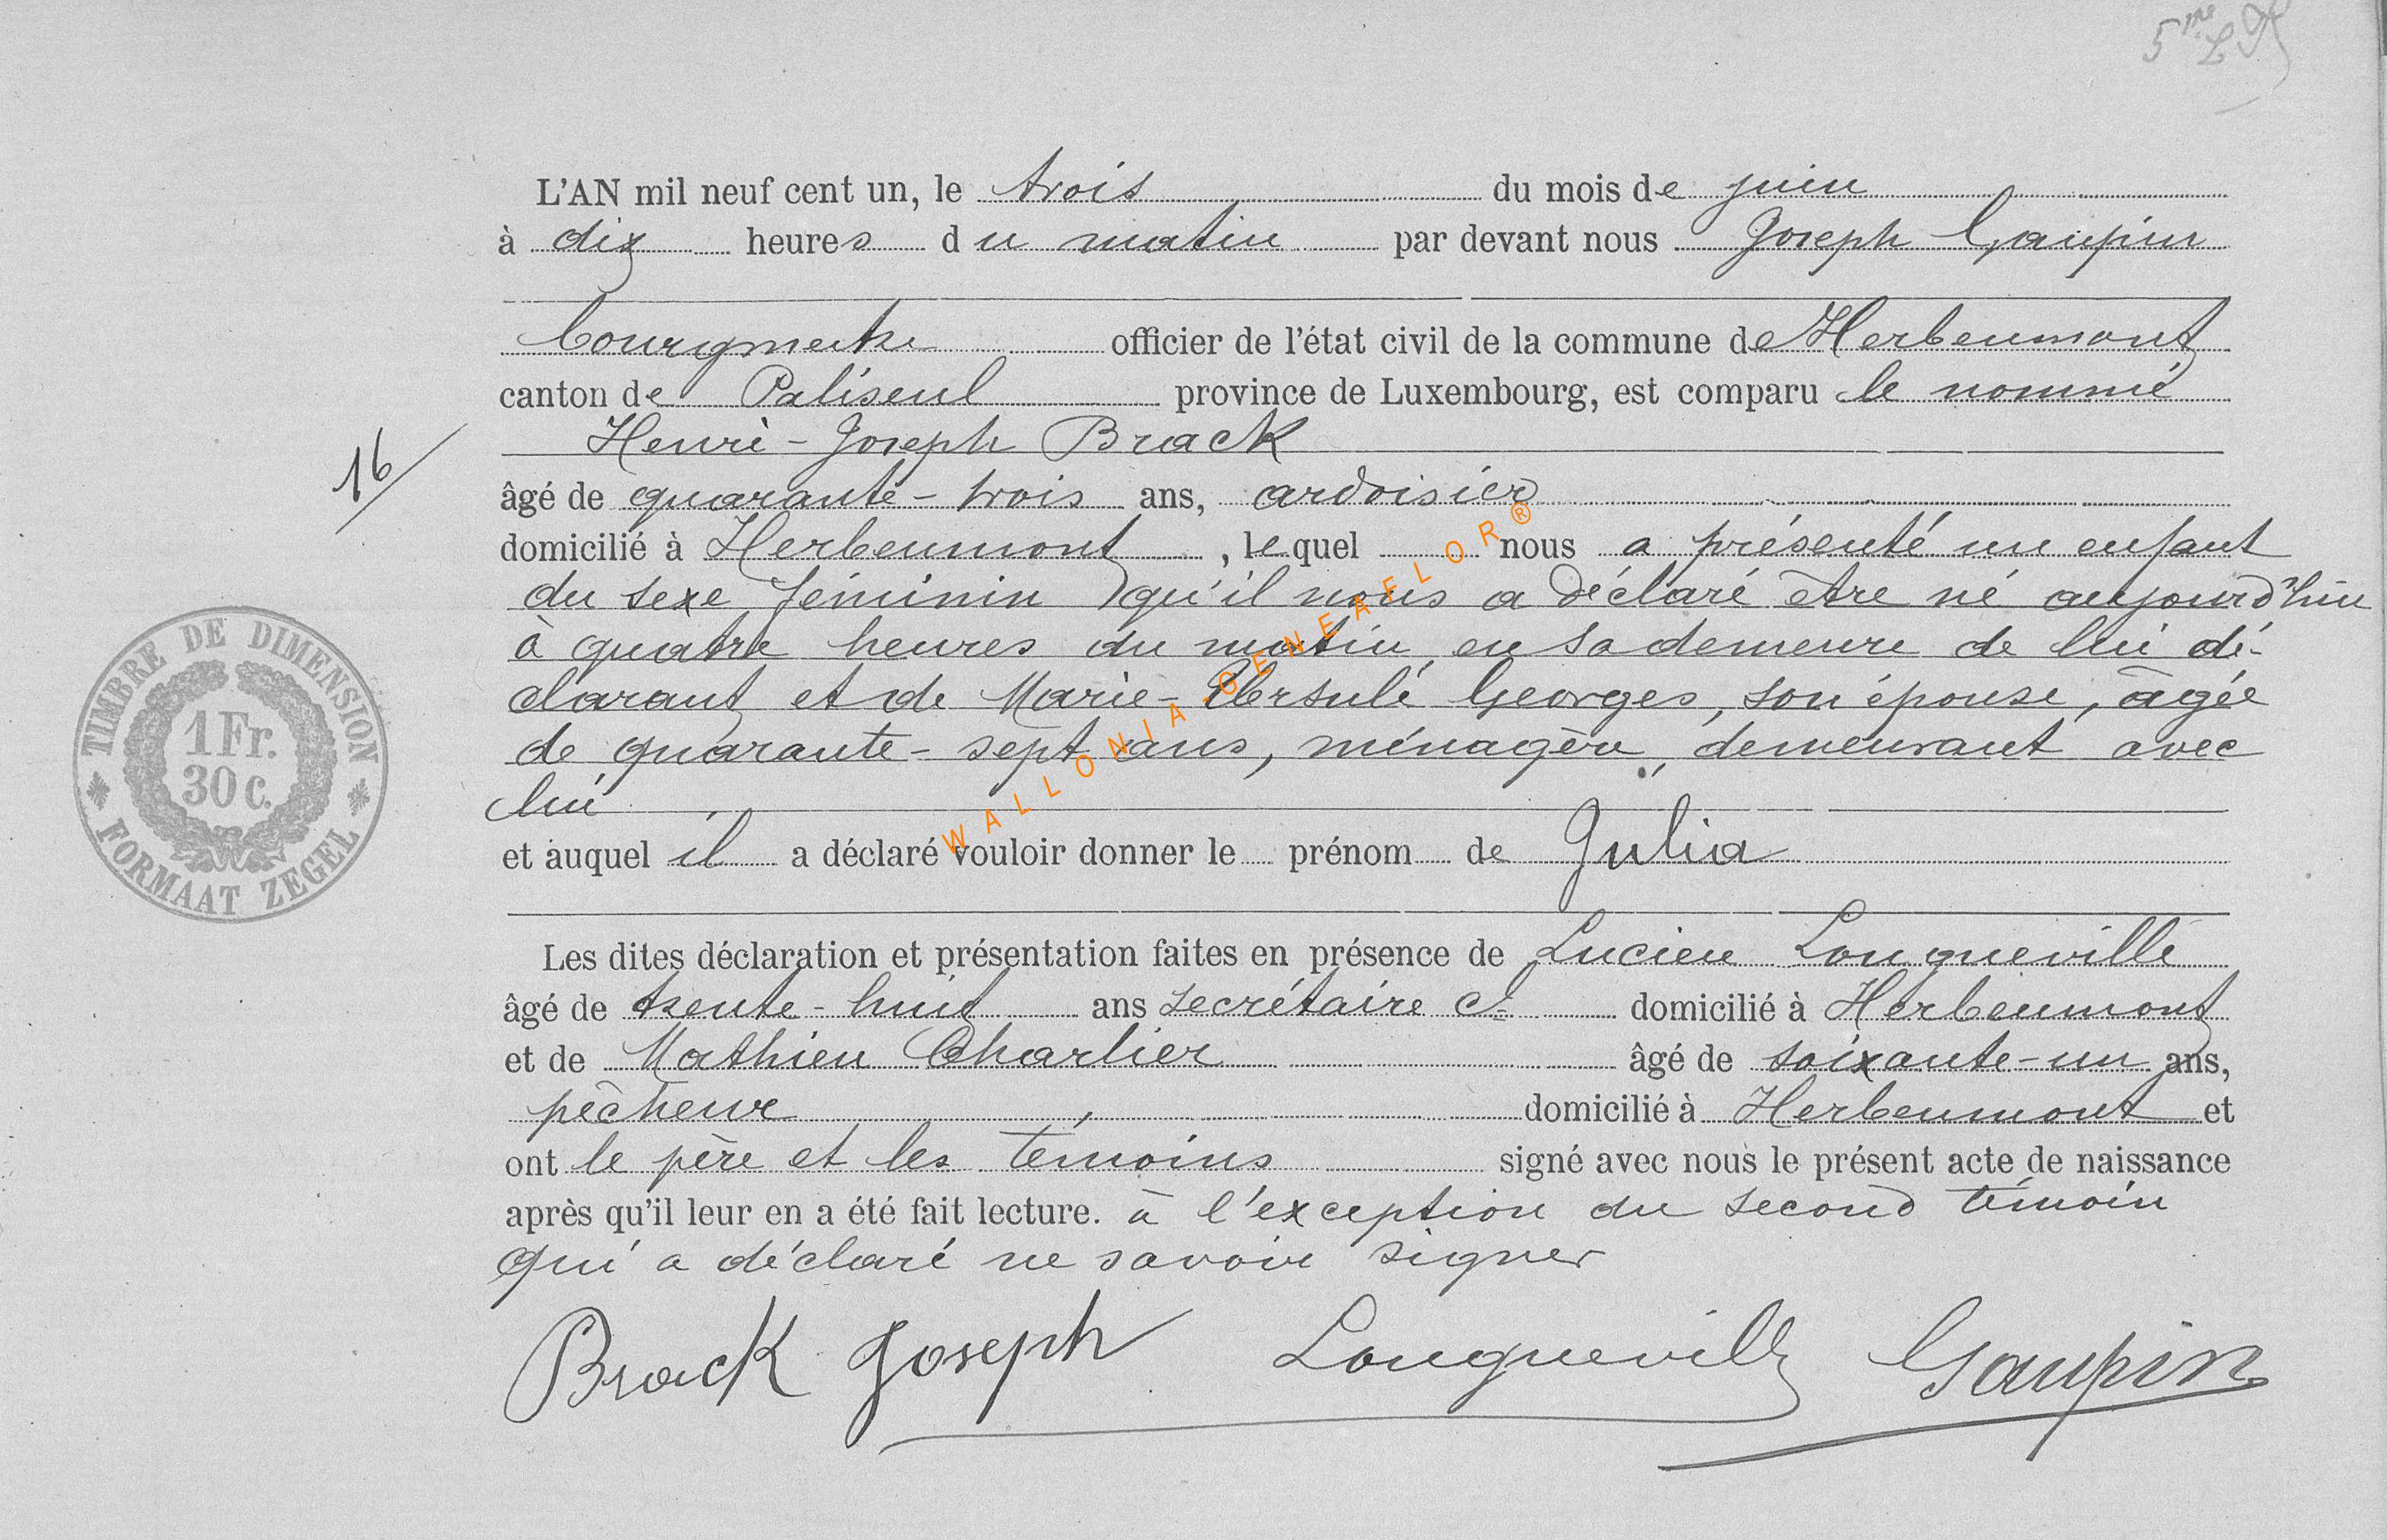 5me L 95
L'AN mil neuf cent un, le trois du mois de juin
à dix heures du matin par devant nous Joseph Gaupin
bourgmestre officier de l'état civil de la commune de Herbeumont
canton de Paliseul province de Luxembourg, est comparu le nommé
Henri-Joseph Brack
16
âgé de quarante-trois ans, ardoisier
domicilié à Herbeumont, lequel nous a présenté un enfant
du sexe féminin qu'il nous a déclaré être né aujourd'hui
à quatre heures du matin, en sa demeure de lui dé-
clarant et de Marie-Ursule Georges, son épouse, âgée
de quarante-sept ans, ménagère, demeurant avec
lui
et auquel il a déclaré vouloir donner le prénom de Julia
Les dites déclaration et présentation faites en présence de Lucien Longueville
âgé de trente-huit ans secrétaire cl domicilié à Herbeumont
et de Mathieu Charlier âgé de soixante-un ans,
pêcheur, domicilié à Herbeumont et
ont le père et les témoins signé avec nous le présent acte de naissance
après qu'il leur en a été fait lecture. à l'exception du second témoin
qui a déclaré ne savoir signer
Brack Joseph Longueville Gaupin
TIMBRE DE DIMENSION
1 Fr.
30 c.
FORMAAT ZEGEL
WALLONIA GENEAFLOR®